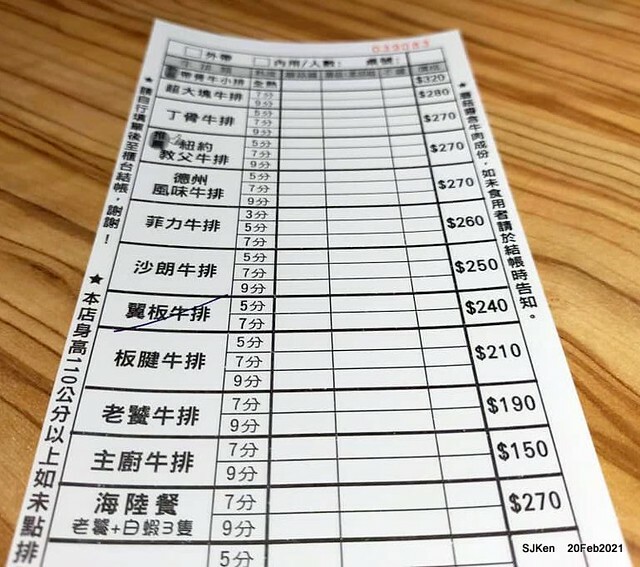 039083
□外帶 □內用/人數: 桌號:
帶骨牛小排 全熟 $320
超大塊牛排 7分 9分 $280
丁骨牛排 5分 7分 9分 $270
推薦 紐約教父牛排 5分 7分 9分 $270
德州風味牛排 5分 7分 9分 $270
菲力牛排 3分 5分 7分 $260
沙朗牛排 5分 7分 9分 $250
翼板牛排 5分 7分 $240
板腱牛排 5分 7分 9分 $210
老饕牛排 7分 9分 $190
主廚牛排 7分 9分 $150
海陸餐 老饕+白蝦3隻 7分 9分 $270
5分
★請自行填單後至櫃台結帳，謝謝！
★本店身高110公分以上如未點排
★蘑菇醬含牛肉成份，如未食用者請於結帳時告知。
SJKen 20Feb2021